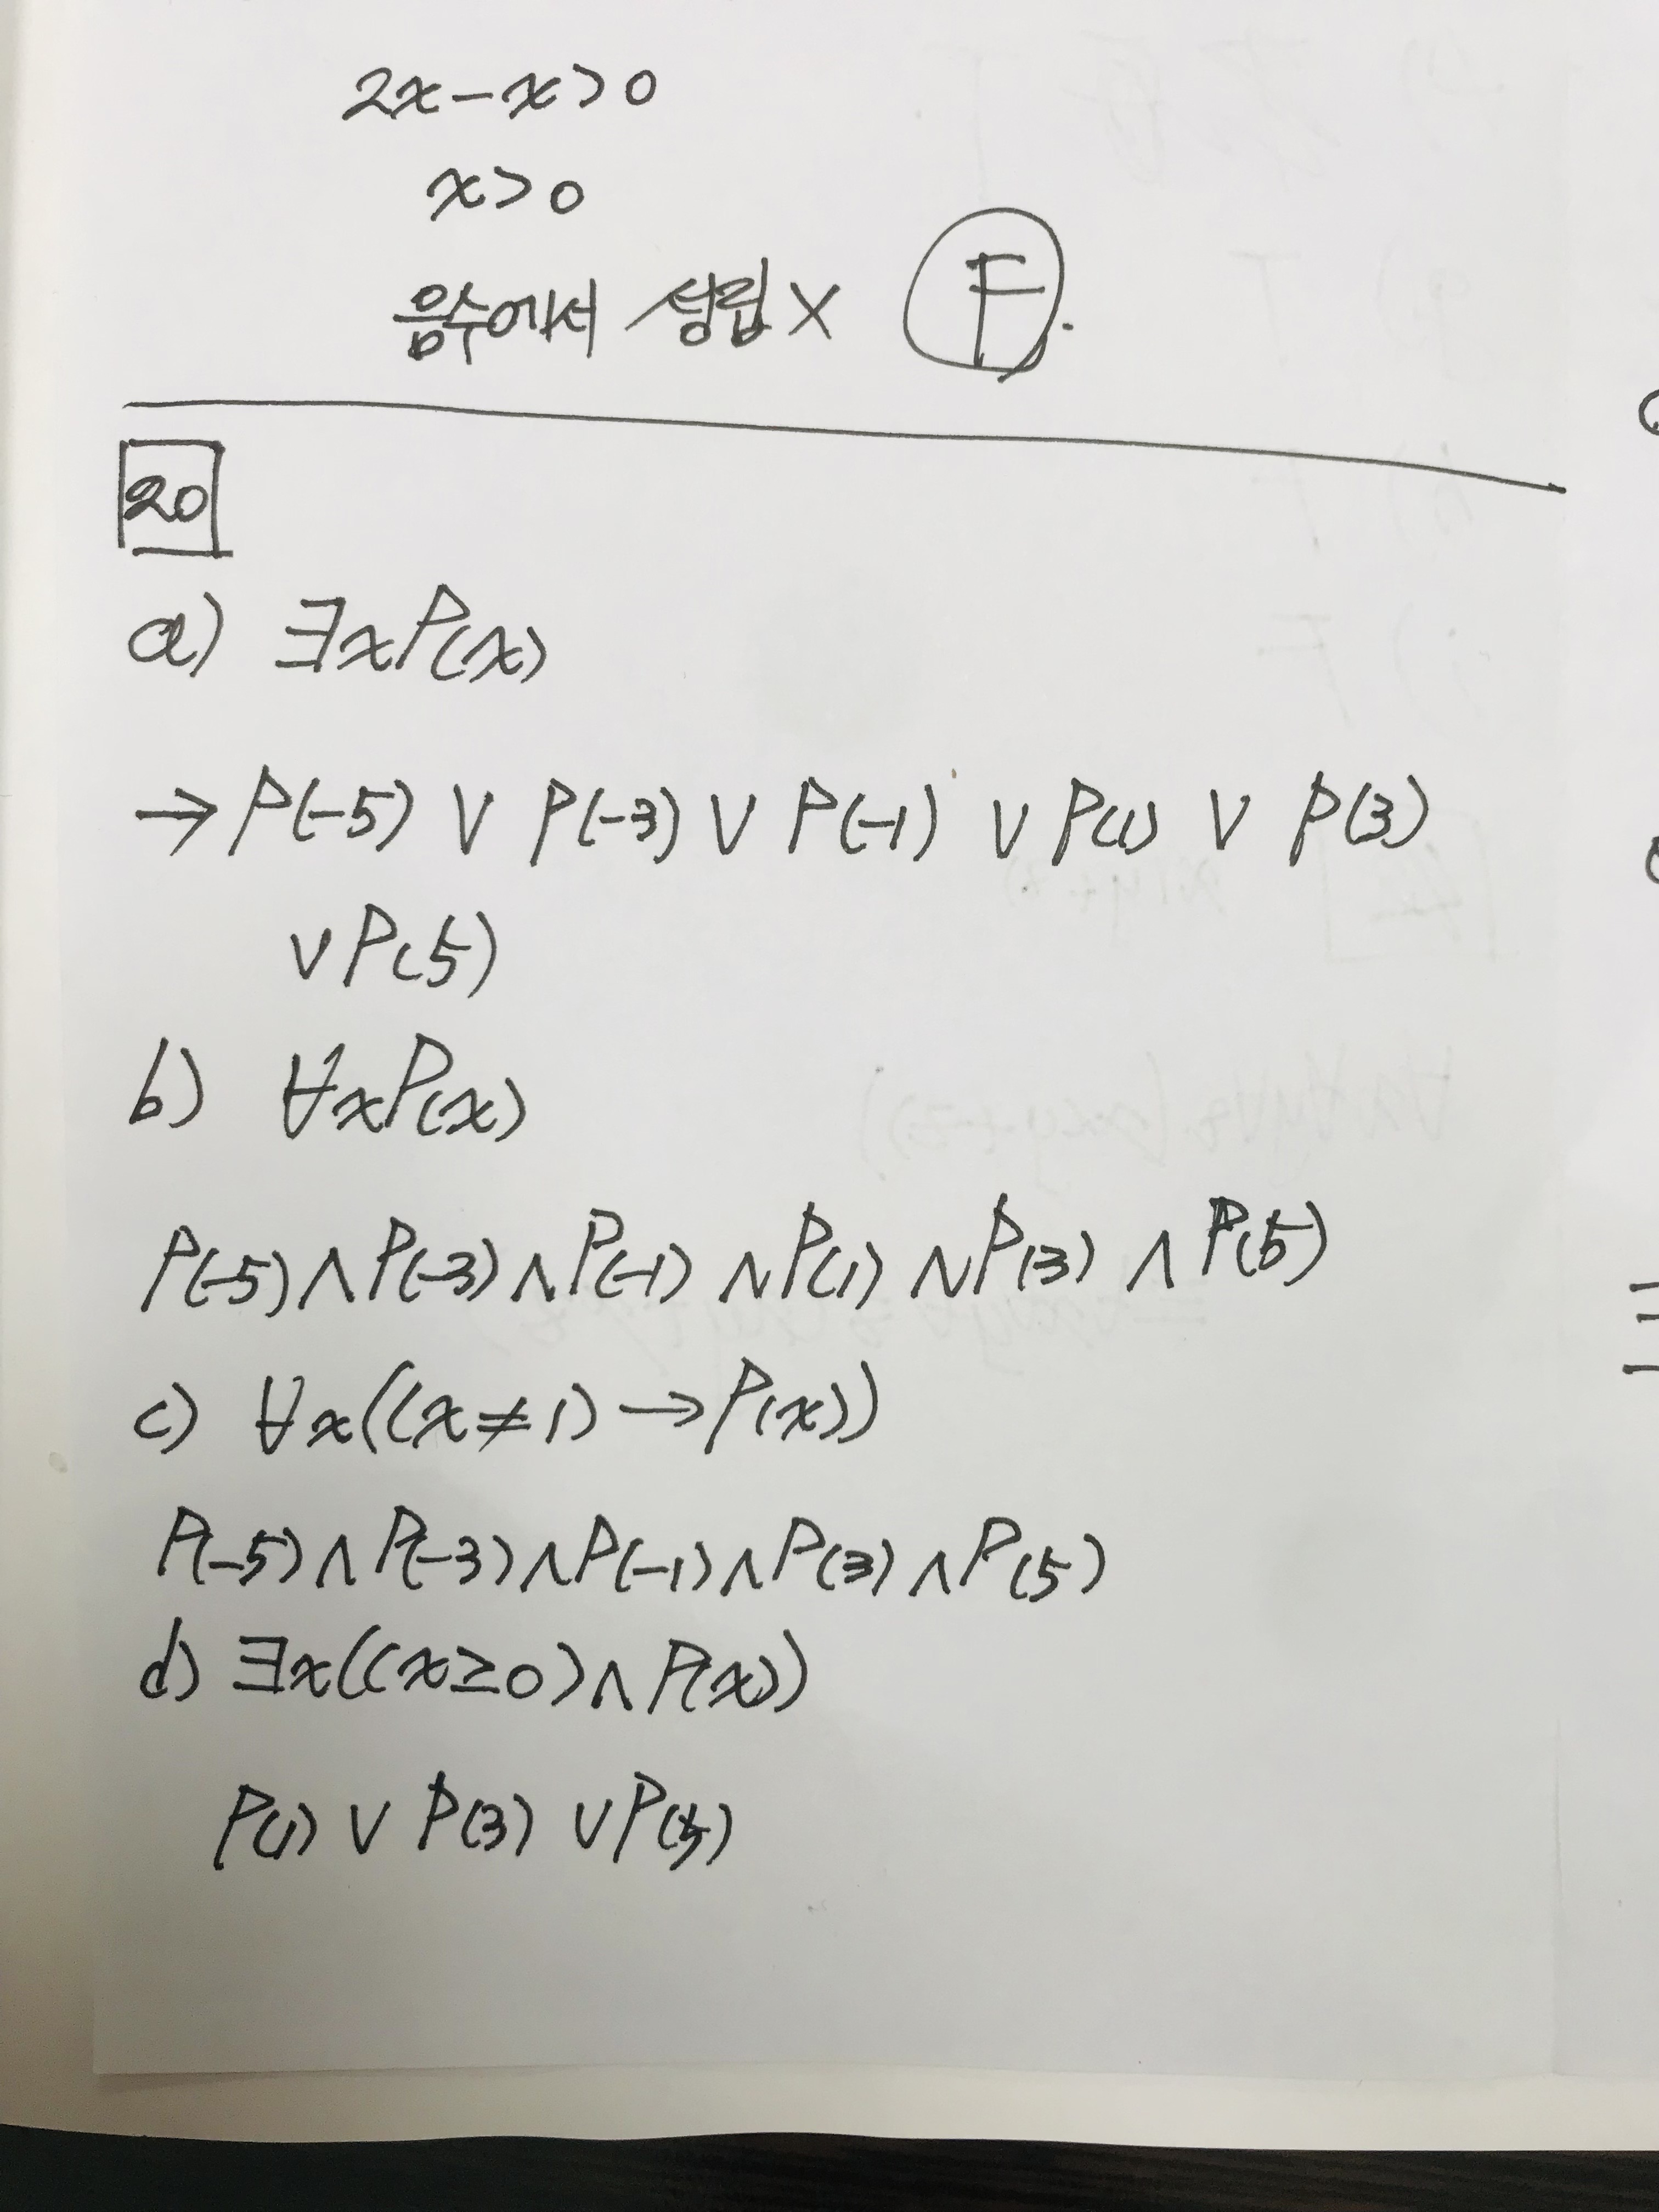 2x-x>0
x>0
음수에서 성립 X F.
20
a) ∃xP(x)
→ P(-5) ∨ P(-3) ∨ P(-1) ∨ P(1) ∨ P(3)
∨ P(5)
b) ∀xP(x)
P(-5) ∧ P(-3) ∧ P(-1) ∧ P(1) ∧ P(3) ∧ P(5)
c) ∀x((x≠1) → P(x))
P(-5) ∧ P(-3) ∧ P(-1) ∧ P(3) ∧ P(5)
d) ∃x((x≥0) ∧ P(x))
P(1) ∨ P(3) ∨ P(5)